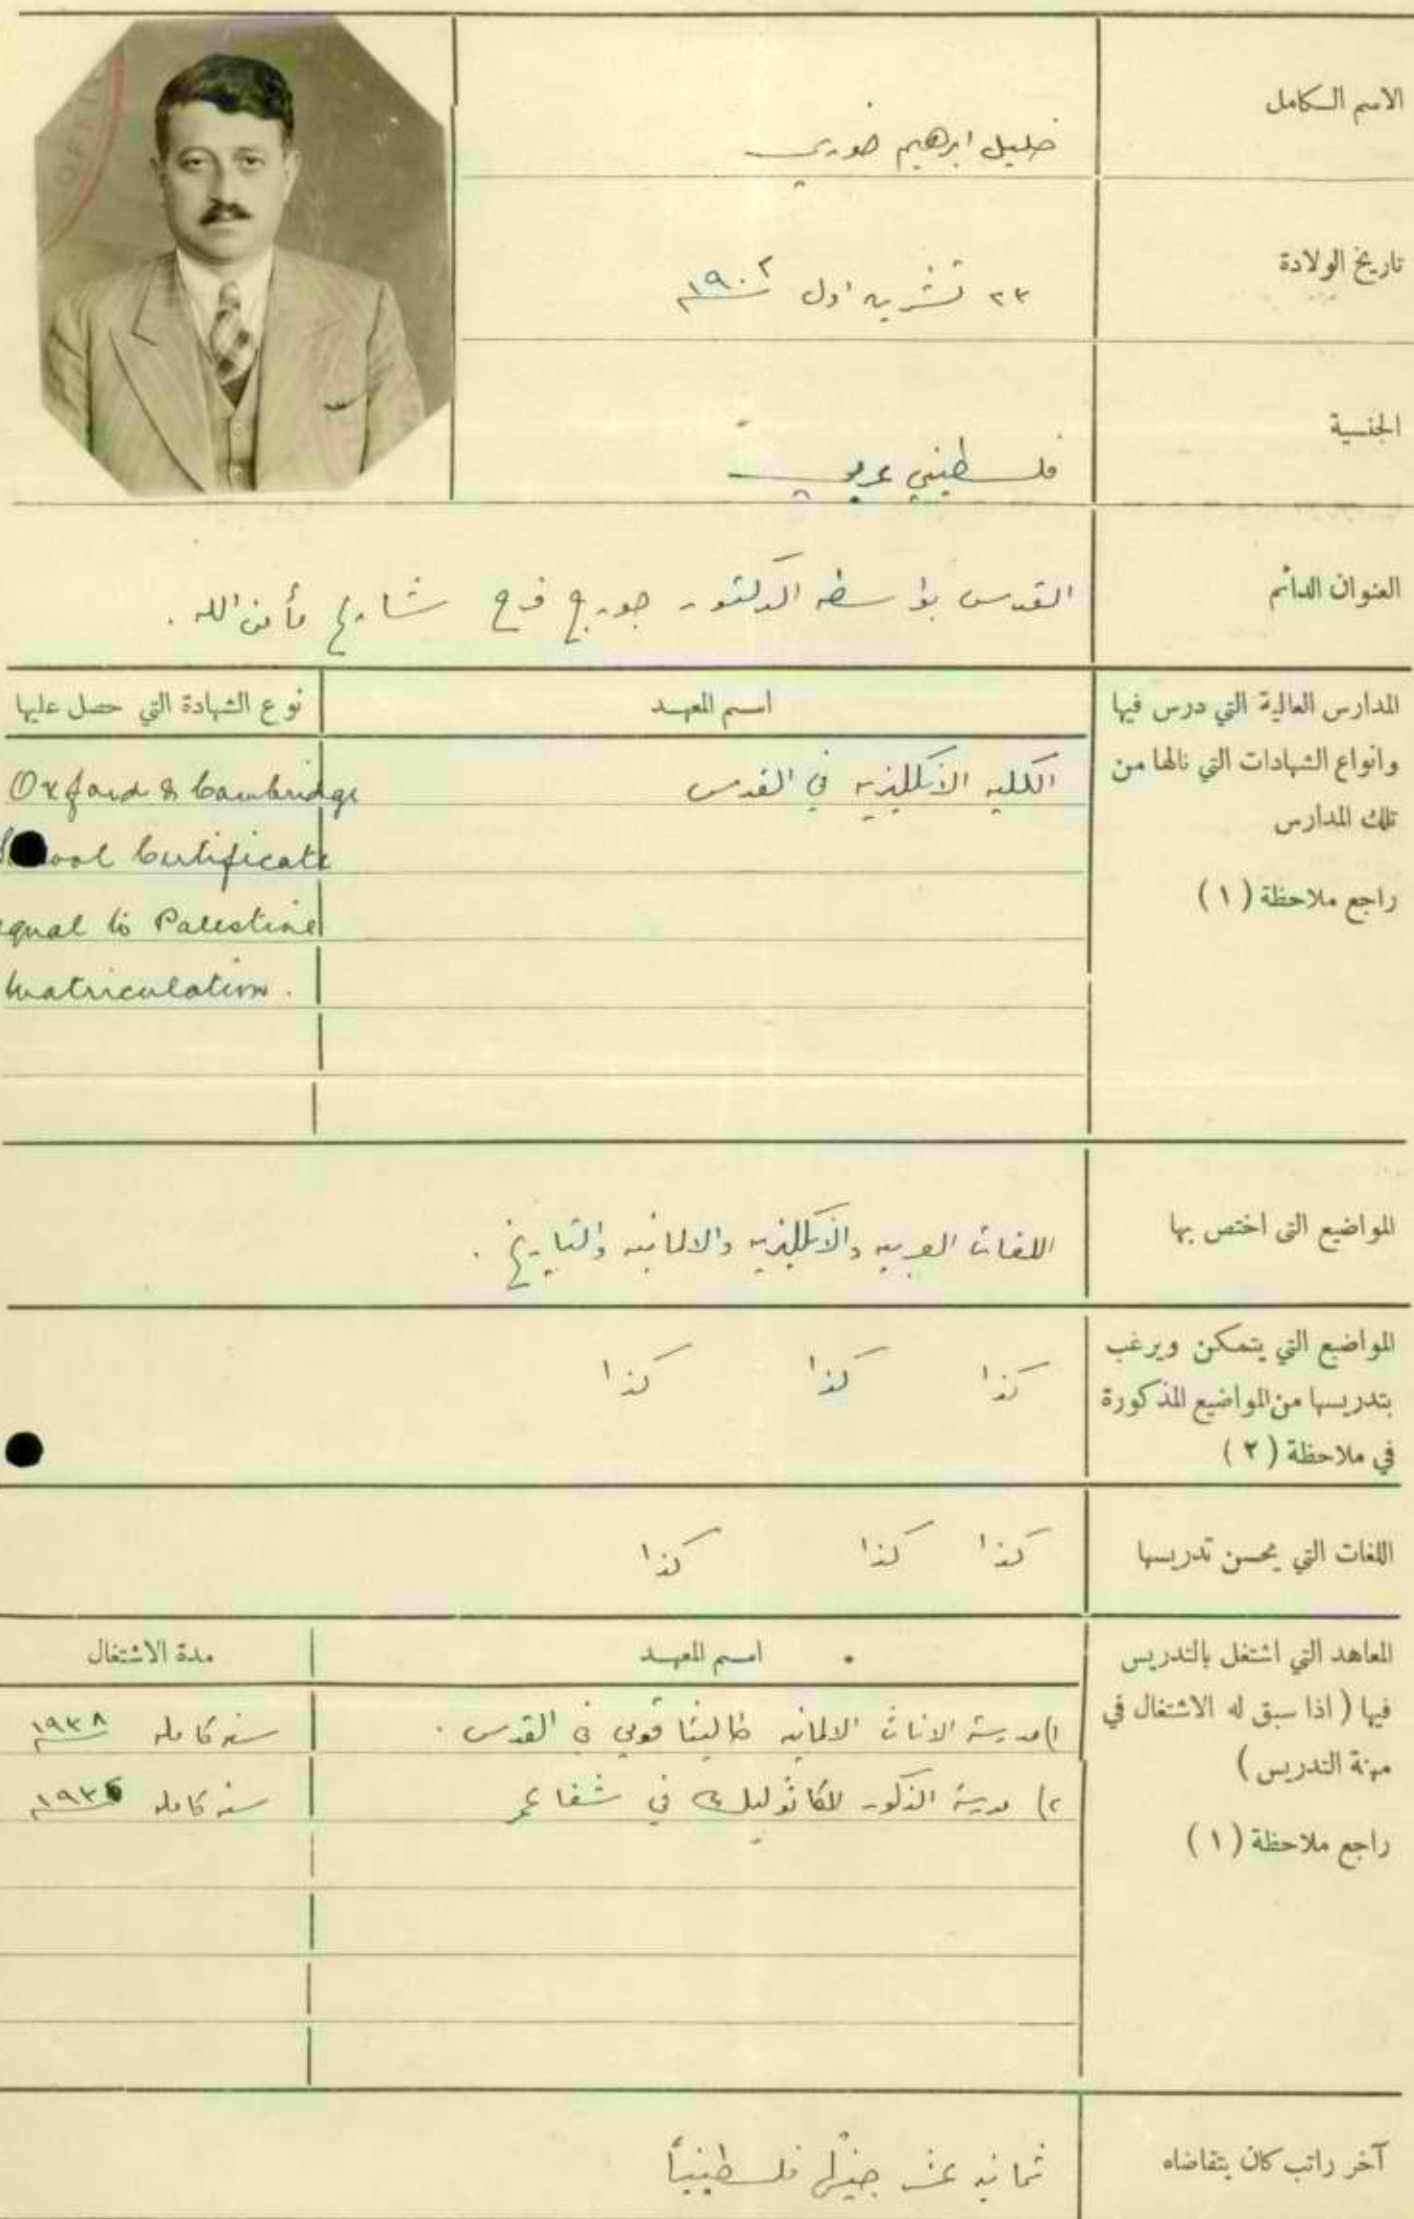 الاسم الكامل
خليل ابرهيم خوري
تاريخ الولادة
٢٣ تشرين اول ١٩٠٢
الجنسية
فلسطيني عربي
العنوان الدائم
القدس بواسطة الدكتور جورج فرح شارع مأمن الله.
المدارس العالية التي درس فيها
وانواع الشهادات التي نالها من
تلك المدارس
راجع ملاحظة (١)
اسم المعهد
الكلية الانكليزية في القدس
نوع الشهادة التي حصل عليها
Oxford & Cambridge
School Certificate
equal to Palestine
Matriculation.
المواضيع التي اختص بها
اللغات العربية والانكليزية والالمانية والتاريخ.
المواضيع التي يتمكن ويرغب
بتدريسها من المواضيع المذكورة
في ملاحظة (٢)
كذا كذا كذا
اللغات التي يحسن تدريسها
كذا كذا كذا
المعاهد التي اشتغل بالتدريس
فيها (اذا سبق له الاشتغال في
مهنة التدريس)
راجع ملاحظة (١)
اسم المعهد
مدة الاشتغال
١) مدرسة الاناث الالمانية طاليثا قومي في القدس. سنة كاملة ١٩٣٨
٢) مدرسة الذكور للكاثوليك في شفاعمر سنة كاملة
آخر راتب كان يتقاضاه
ثمانية عشر جنيهاً فلسطينياً
OFFIC